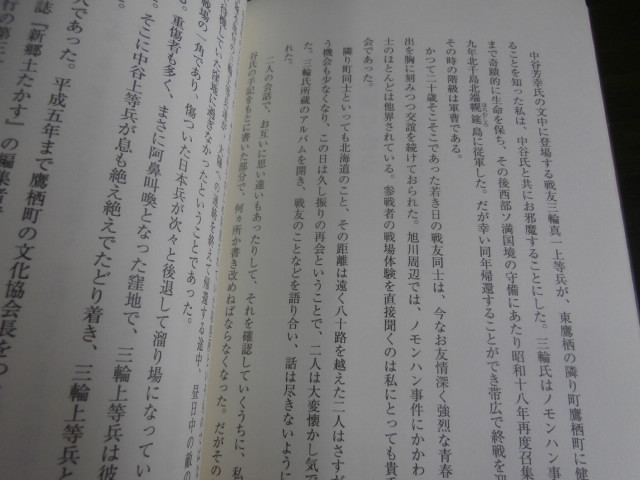 中谷芳幸氏の文中に登場する戦友三輪真一上等兵が、東鷹栖の隣り町鷹栖町に健
ることを知った私は、中谷氏と共にお邪魔することにした。三輪氏はノモンハン事
まで奇蹟的に生命を保ち、その後西部ソ満国境の守備にあたり昭和十八年再度召集
九年北千島北端幌筵島に従軍した。だが幸い同年帰還することができ帯広で終戦を迎
その時の階級は軍曹である。
かつて二十歳そこそこであった若き日の戦友同士は、今なお友情深く強烈な青春
出を胸に刻みつつ交誼を続けておられた。旭川周辺では、ノモンハン事件にかかわ
士のほとんどは他界されている。参戦者の戦場体験を直接聞くのは私にとっても貴
会であった。
隣り町同士といっても北海道のこと、その距離は遠く八十路を越えた二人はさすが
う機会も少なくなり、この日は久し振りの再会ということで、二人は大変懐かし気で
た。三輪氏所蔵のアルバムを開き、戦友のことなどを語り合い、話は尽きないように
れた。
二人の会話で、お互いに思い違いもあったりして、それを確認していくうちに、私
谷氏の手記をもとに書いた部分で、何ヵ所か書き改めねばならなくなった。だがその
への連絡を終えて帰還する途中、昼日中の敵の
していた窪地に過ぎなかったということであった。
戦場の一角であり、傷ついた日本兵が次々と後退して溜り場になってい
。重傷者も多く、まさに阿鼻叫喚となった窪地で、三輪上等兵は彼
そこに中谷上等兵が息も絶え絶えでたどり着き、三輪上等兵と
人であった。平成五年まで鷹栖町の文化協会長をつ
誌『新郷土たかす』の編集者
行の第三